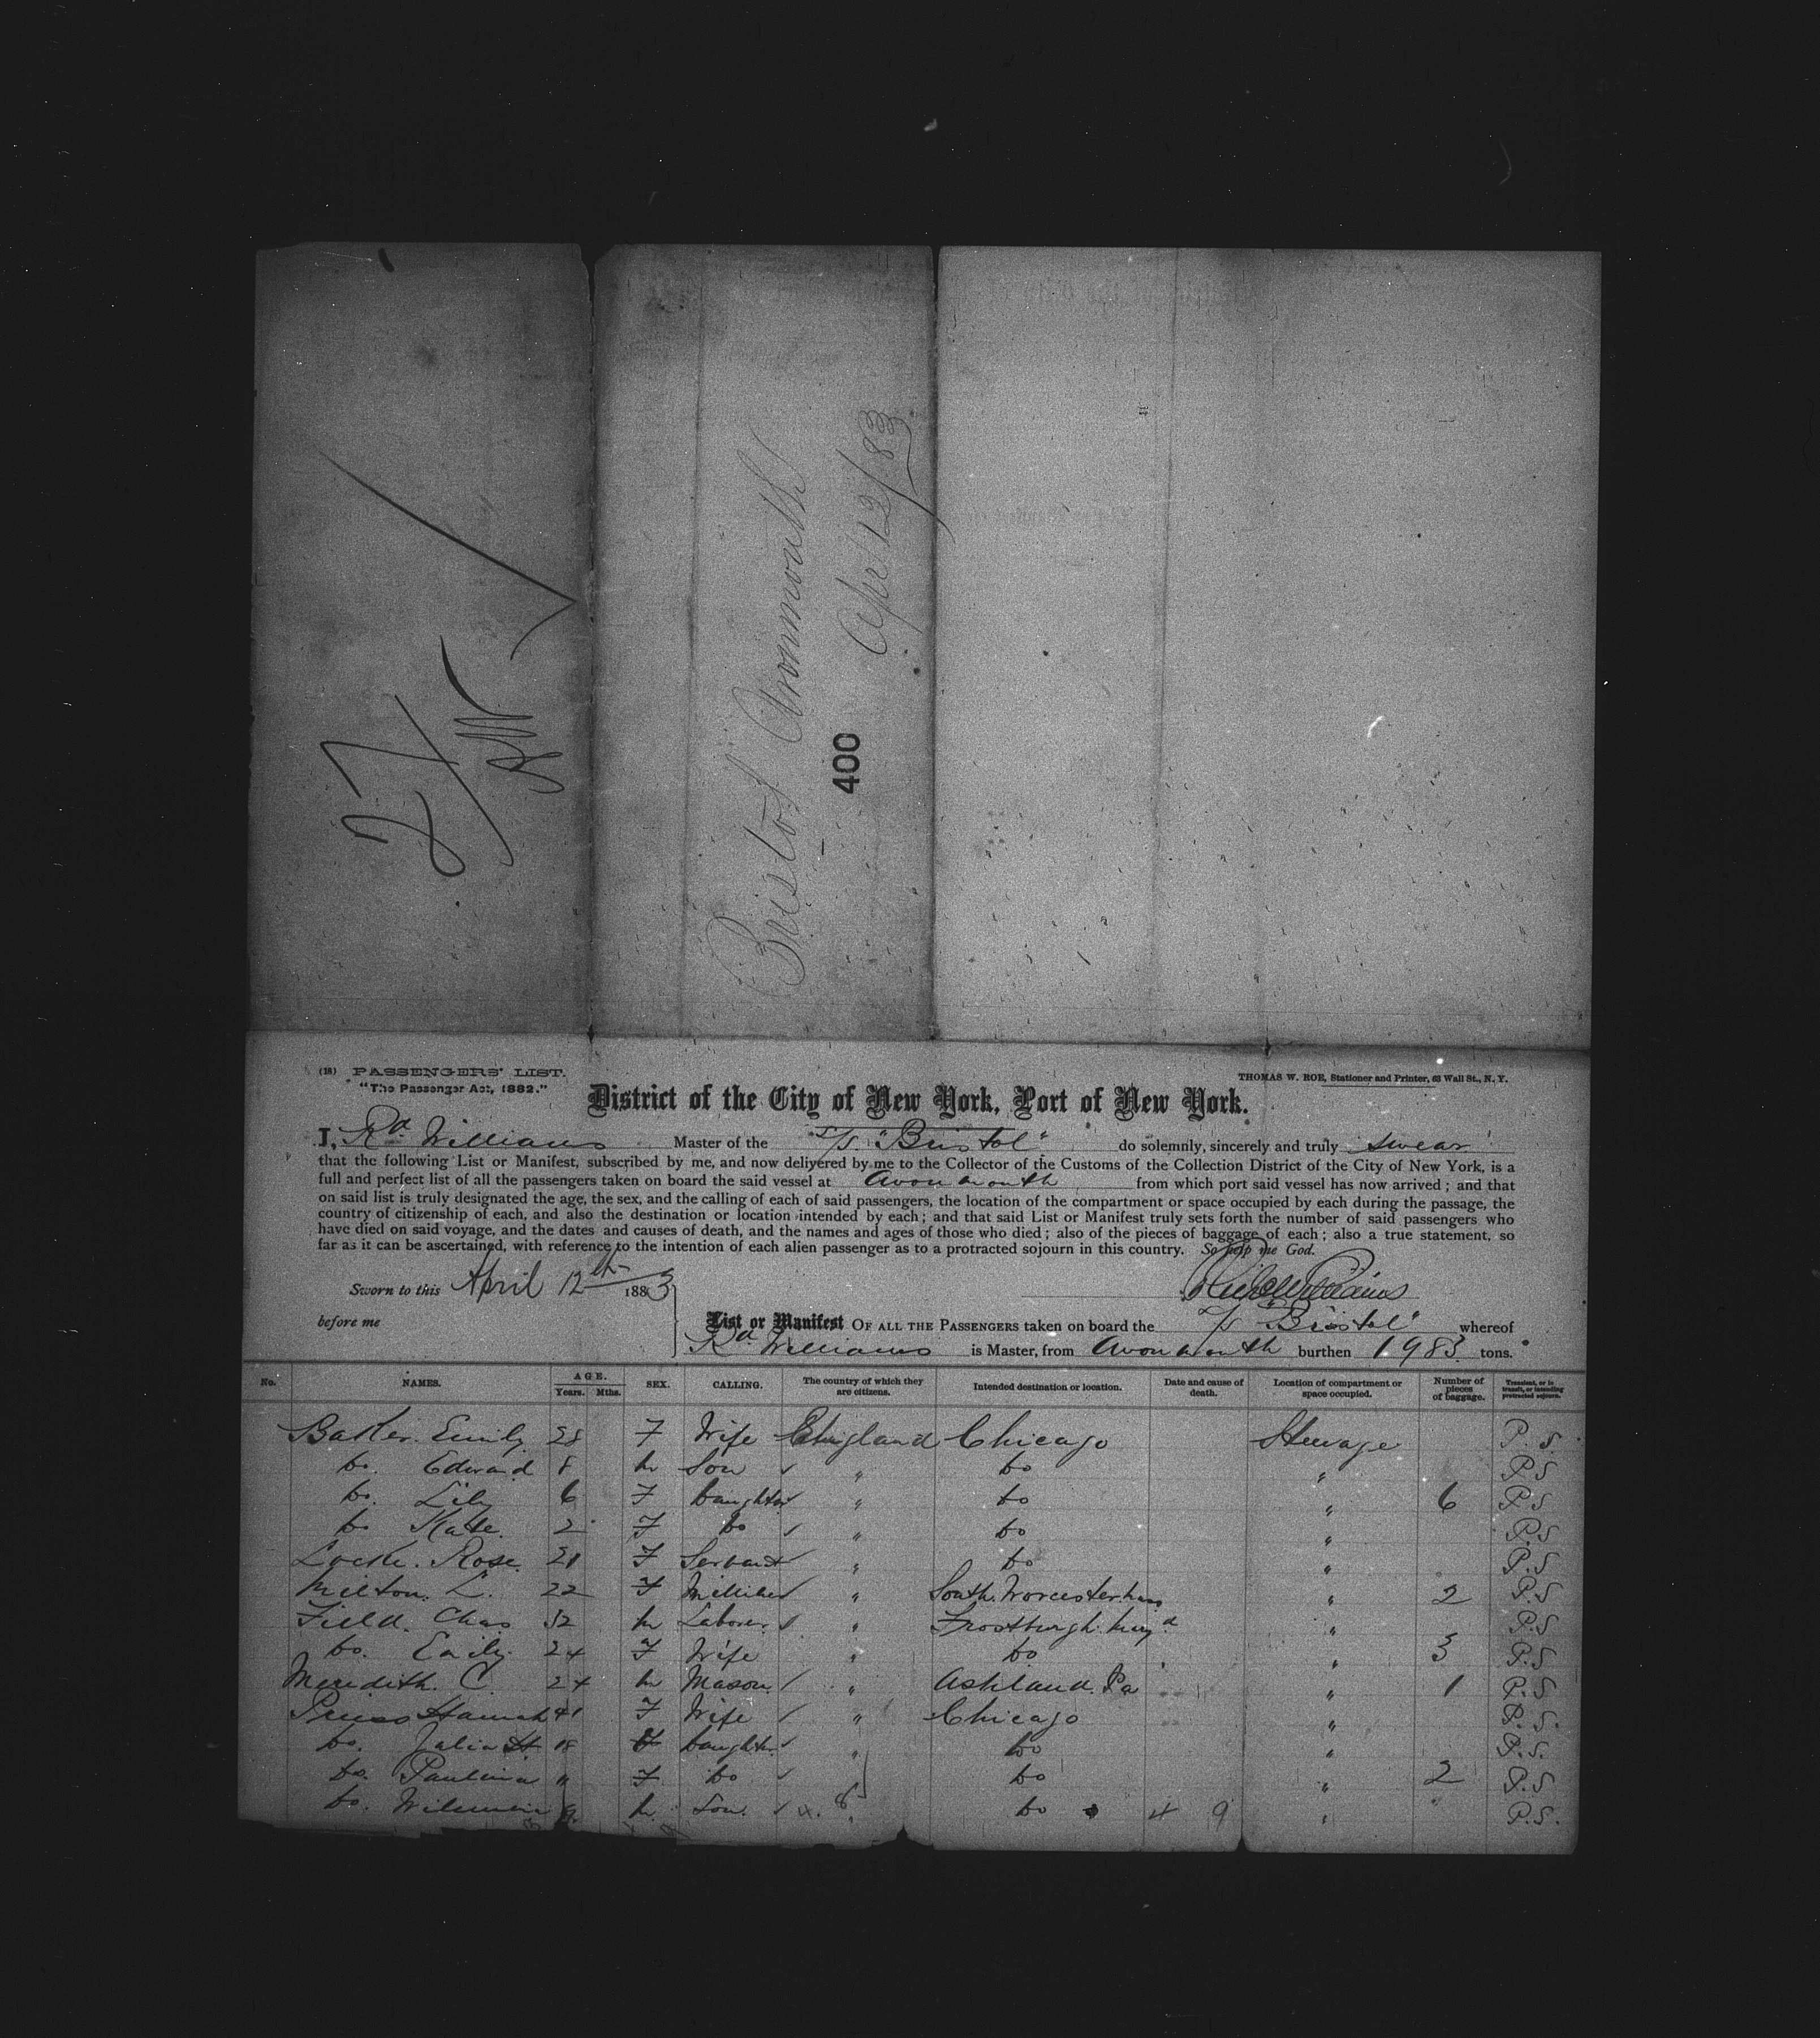 27
Bristol Avonmouth
400
Apr 12/83
(18) PASSENGERS' LIST.
"The Passenger Act, 1882."
THOMAS W. ROE, Stationer and Printer, 63 Wall St., N. Y.
District of the City of New York, Port of New York.
I, Rd Williams Master of the S/S. "Bristol" do solemnly, sincerely and truly swear
that the following List or Manifest, subscribed by me, and now delivered by me to the Collector of the Customs of the Collection District of the City of New York, is a
full and perfect list of all the passengers taken on board the said vessel at Avonmouth from which port said vessel has now arrived; and that
on said list is truly designated the age, the sex, and the calling of each of said passengers, the location of the compartment or space occupied by each during the passage, the
country of citizenship of each, and also the destination or location intended by each; and that said List or Manifest truly sets forth the number of said passengers who
have died on said voyage, and the dates and causes of death, and the names and ages of those who died; also of the pieces of baggage of each; also a true statement, so
far as it can be ascertained, with reference to the intention of each alien passenger as to a protracted sojourn in this country. So help me God.
Sworn to this April 12th 1883
before me
List or Manifest OF ALL THE PASSENGERS taken on board the S/S "Bristol" whereof
Rd Williams is Master, from Avonmouth burthen 1983 tons.
No. NAMES. AGE. Years. Mths. SEX. CALLING. The country of which they are citizens. Intended destination or location. Date and cause of death. Location of compartment or space occupied. Number of pieces of baggage. Transient, or in transit, or intending protracted sojourn.
Barker Emily 28 F Wife England Chicago Steerage P.S.
Do. Edward 8 M Son " Do " P.S
Do. Lily 6 F Daughter " Do " 6 P.S
Do Kate 2 F Do " Do " P.S
Locke. Rose 21 F Servant " Do " P.S
Milton. L. 22 F Milliner " South Worcester Mass " 2 P.S
Field. Chas 32 M Laborer " Frostburgh Myd " P.S
Do. Emily 24 F Wife " Do " 3 P.S
Meredith. C. 24 M Mason " Ashland. Pa " 1 P.S
Hannah 41 F Wife " Chicago " P.S.
Do. Julia 18 F Daughter " Do " P.S.
Do. Paulina " F Do Do " 2 P.S
Do. M Son " Do " P.S.